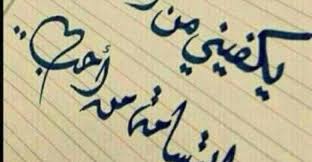 يكفيني من
ابتسامة من أحب